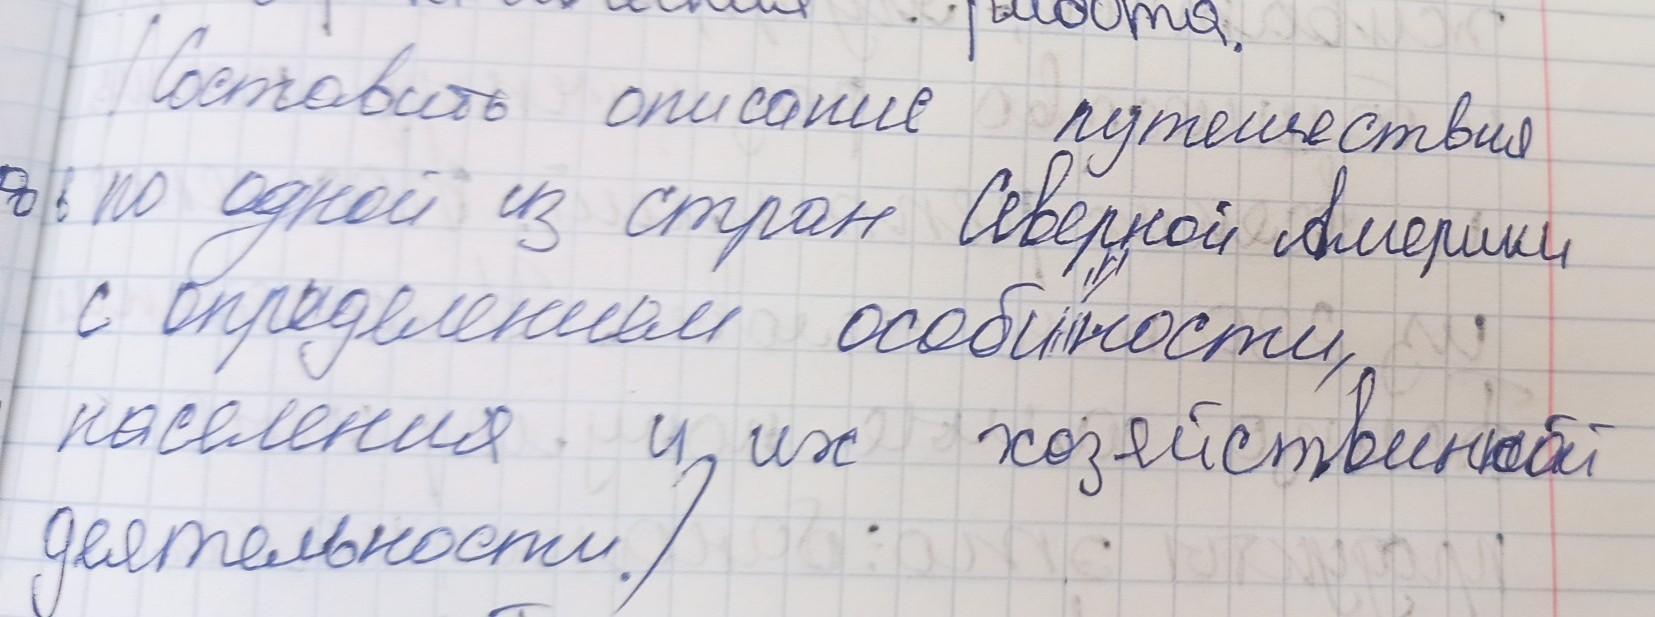 работа.
(Составить описание путешествия
по одной из стран Северной Америки
с определением особенности,
населения и их хозяйственной
деятельности.)